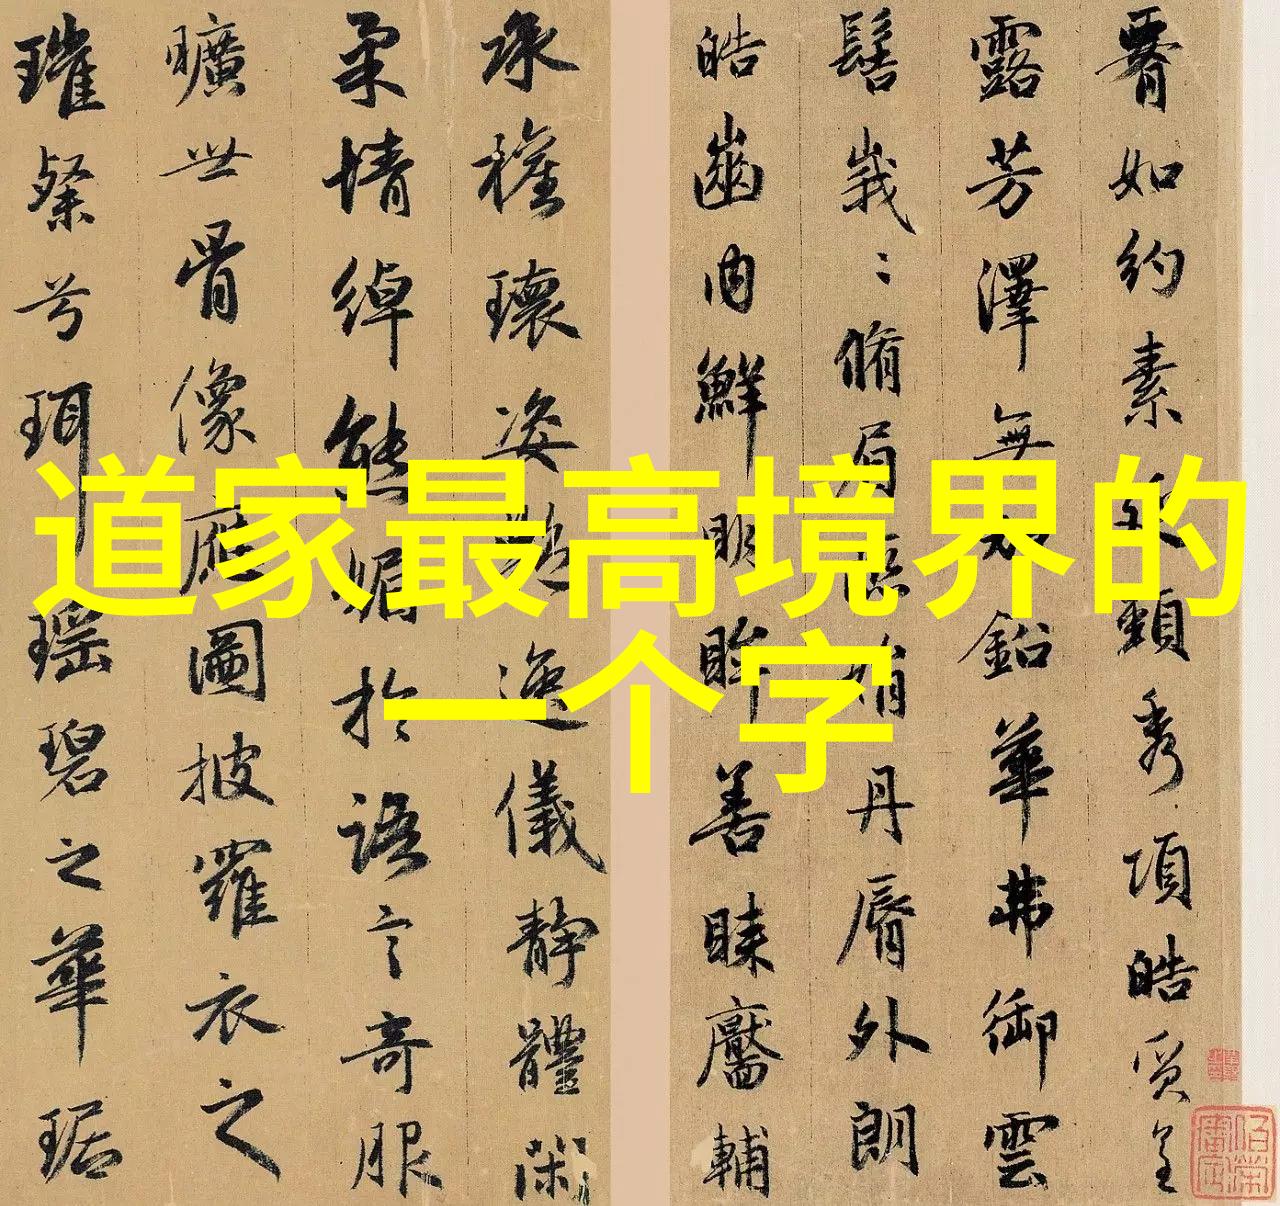 道家最高境界的
一个字
腰如約素延頸秀項皓質呈
露芳澤無加鉛華弗御雲
髻峩：脩眉聯娟丹脣外朗
皓齒内鮮明眸善睞靨輔
承權瓌姿艷逸儀靜體閑
柔情綽態媚於語言奇服
曠世骨像應圖披羅衣之
璀粲兮珥瑤碧之華琚